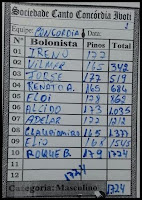 Sociedade Canto Concórdia Ivoti
Equipe: CONCORDIA Data:
Nº Bolonista Pinos Total
01 TRENO 177
02 VILMAR 165 342
03 JORGE 177 519
04 RENATO A. 165 684
05 ELOI 178 862
06 173 1035
07 ADELAR 177 1212
08 Claudiomiro 165 1377
09 ELIO 168 1545
10 ROQUE B. 179 1724
11
12 1724
Categoria: Masculino 1724